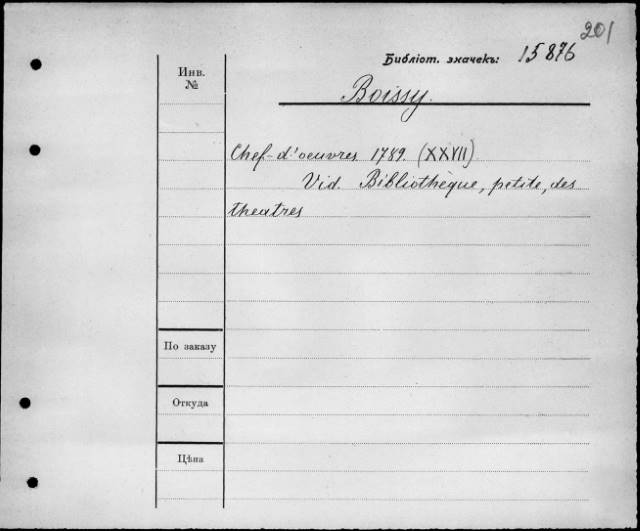 201
Библіот. значекъ: 15876
Инв.
№
Boissy.
Chef-d'oeuvres 1789. (XXVII)
Vid. Bibliothèque, petite, des
theatres
По заказу
Откуда
Цѣна